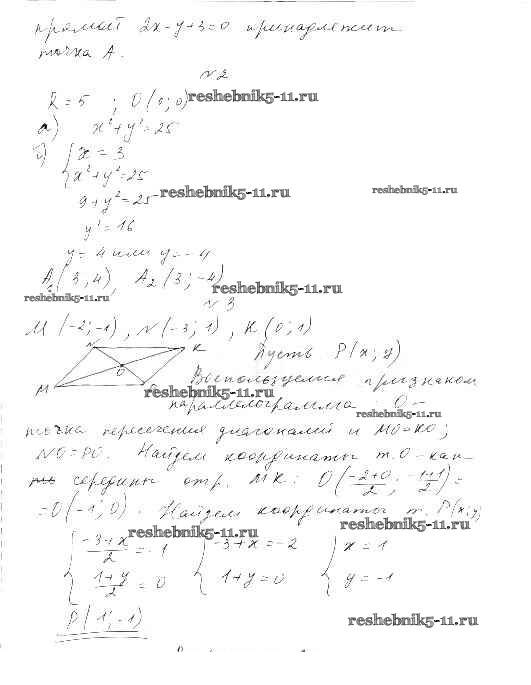 прямой 2x-y+3=0 принадлежит
точка A.
№2
R=5 ; O(0;0) reshebnik5-11.ru
а) x²+y²=25
б) { x=3
{ x²+y²=25
9+y²=25 reshebnik5-11.ru reshebnik5-11.ru
y²=16
y=4 или y=-4
A₁(3,4), A₂(3;-4) reshebnik5-11.ru
reshebnik5-11.ru №3
M(-2;-1), N(-3;1), K(0;1)
N K Пусть P(x;y)
O
M Воспользуемся признаком
reshebnik5-11.ru
параллелограмма O - reshebnik5-11.ru
точка пересечения диагоналей и MO=KO;
NO=PO. Найдем координаты т.O - как
середины отр. MK: O(-2+0/2; -1+1/2)=
=O(-1;0). Найдем координаты т. P(x;y) reshebnik5-11.ru
{ -3+x/2=-1 reshebnik5-11.ru { -3+x=-2 { x=1
{ 1+y/2=0 { 1+y=0 { y=-1
P(1;-1) reshebnik5-11.ru